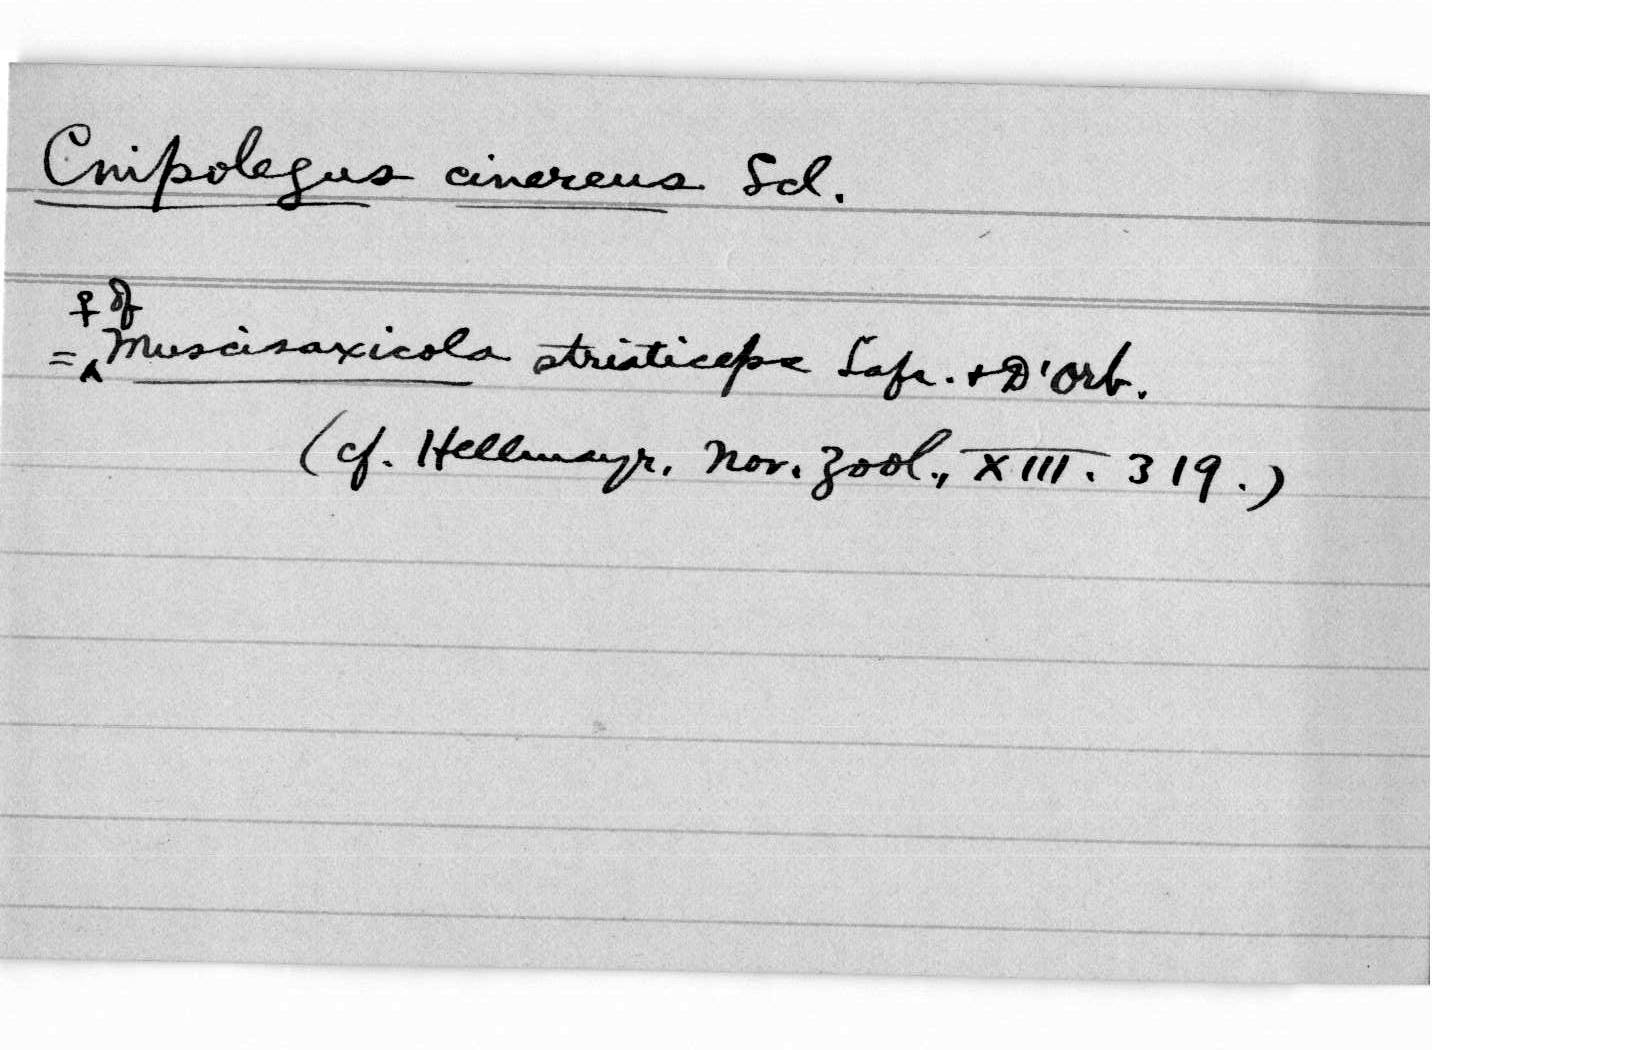 Cnipolegus cinereus Scl.
♀ of
= ‸ Muscisaxicola striaticeps Lafr. + D'Orb.
(cf. Hellmayr, Nov. Zool., XIII. 319.)